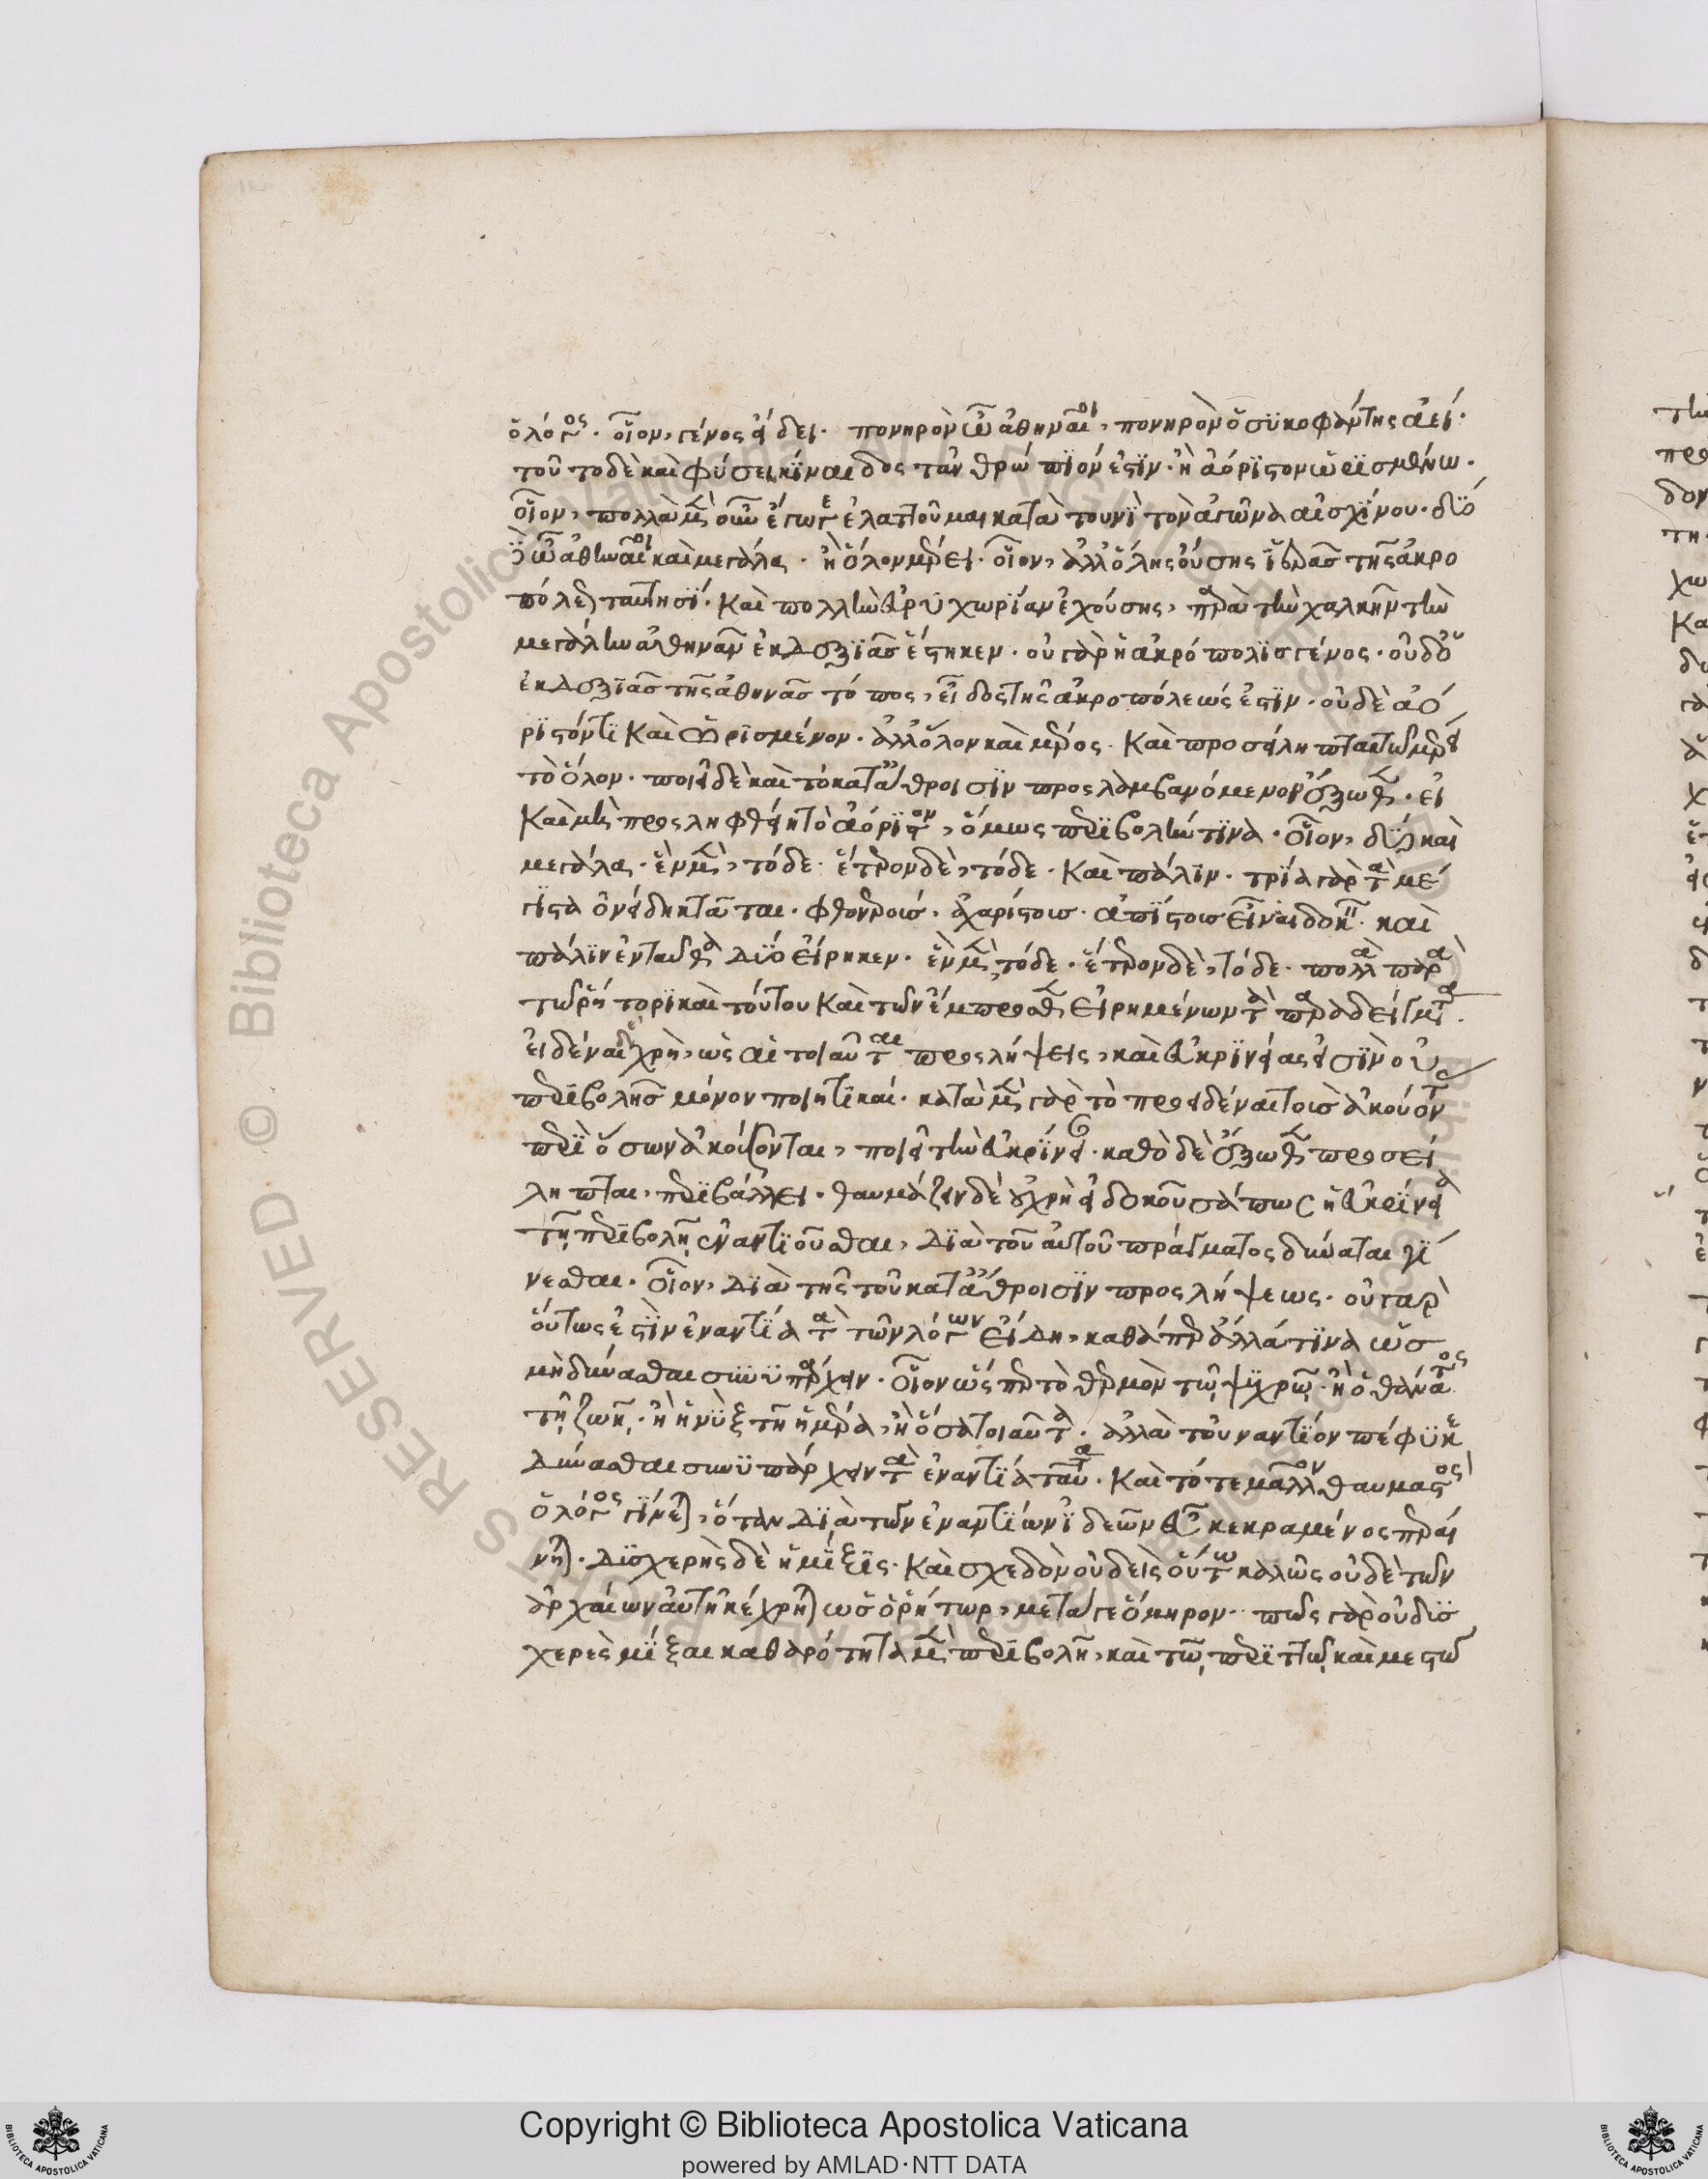 ὁ λόγος. οἷον, γένος εἴδει. πονηρὸν ὦ ἀθηναῖοι, πονηρὸν ὁ συκοφάντης ἀεί.
τοῦτο δὲ καὶ φύσει κίναιδος τἀνθρώπιόν ἐστιν. ἢ ἀόριστον ὡρισμένω.
οἷον, πολλὰ μὲν οὖν ἔγωγε ἐλαττοῦμαι κατὰ τουνὶ τὸν ἀγῶνα αἰσχίνου. δύο
δ' ὦ ἀθηναῖοι καὶ μεγάλα. ἢ ὅλον μέρει. οἷον, ἀλλ' ὅλης οὔσης ἱερᾶς τῆς ἀκρο
πόλεως ταυτησί. καὶ πολλὴν εὐρυχωρίαν ἐχούσης, παρὰ τὴν χαλκῆν τὴν
μεγάλην ἀθηνᾶν ἐκ δεξιᾶς ἕστηκεν. οὐ γὰρ ἡ ἀκρόπολις γένος. οὐδ' ὁ
ἐκ δεξιᾶς τῆς ἀθηνᾶς τόπος, εἶδος τῆς ἀκροπόλεώς ἐστιν. οὐδὲ ἀό
ριστόν τι καὶ ὡρισμένον. ἀλλ' ὅλον καὶ μέρος. καὶ προσείληπται τῶ μέρει
τὸ ὅλον. ποιεῖ δὲ καὶ τὸ κατὰ ἄθροισιν προσλαμβανόμενον ἔξωθεν. εἰ
καὶ μὴ προσληφθείη τὸ ἀόριστον, ὅμως περιβολήν τινα. οἷον, δύο καὶ
μεγάλα. ἓν μὲν, τόδε. ἕτερον δὲ, τόδε. καὶ πάλιν. τρία γὰρ τὰ μέ
γιστα ὀνείδη κτᾶται. φθονεροὶς. ἀχαρίστοις. ἀπίστοις εἶναι δοκεῖ. καὶ
πάλιν ἐνταῦθα δύο εἴρηκεν. ἓν μὲν τόδε. ἕτερον δὲ, τόδε. πολλὰ παρὰ
τῶ ῥήτορι καὶ τούτου καὶ τῶν ἔμπροσθεν εἰρημένων τὰ παραδείγματα.
εἰδέναι δὲ χρὴ, ὡς αἱ τοιαῦται προσλήψεις, καὶ εὐκρίνειας εἰσὶν οὐ
περιβολῆς μόνον ποιητικαί. κατὰ μὲν γὰρ τὸ προειδέναι τοὺς ἀκούοντας
περὶ ὅσων ἀκούσονται, ποιεῖ τὴν εὐκρίνειαν. καθὸ δὲ ἔξωθεν προσεί
ληπται, περιβάλλει. θαυμάζειν δὲ οὐ χρὴ εἰ δοκοῦσά πως ἡ εὐκρίνεια
τῆ περιβολῆ ἐναντιοῦσθαι, διὰ τοῦ αὐτοῦ πράγματος δύναται γί
νεσθαι. οἷον, διὰ τῆς τοῦ κατὰ ἄθροισιν προσλήψεως. οὐ γὰρ
οὕτως ἐστὶν ἐναντία τὰ τῶν λόγων εἴδη, καθάπερ ἄλλα τινὰ ὡς
μὴ δύνασθαι συνυπάρχειν. οἷον ὥσπερ τὸ θερμὸν τῶ ψυχρῶ. ἢ ὁ θάνατος
τῆ ζωῆ. ἢ ἡ νὺξ τῆ ἡμέρα, ἢ ὅσα τοιαῦτα. ἀλλὰ τοὐναντίον πέφυκε
δύνασθαι συνυπάρχειν τὰ ἐναντία ταῦτα. καὶ τότε μᾶλλον θαυμαστὸς
ὁ λόγος γίνεται, ὅταν διὰ τῶν ἐναντίων ἰδεῶν εὖ κεκραμένος περαί
νηται. δυσχερὴς δὲ ἡ μίξις. καὶ σχεδὸν οὐδεὶς οὕτω καλῶς οὐδὲ τῶν
ἀρχαίων αὐτῆ κέχρηται ὡς ὁ ῥήτωρ, μετά γε ὅμηρον. πῶς γὰρ οὐ δυσ
χερὲς μίξαι καθαρότητα μὲν περιβολῆ, καὶ τῶ περιττῶ καὶ μεστῶ